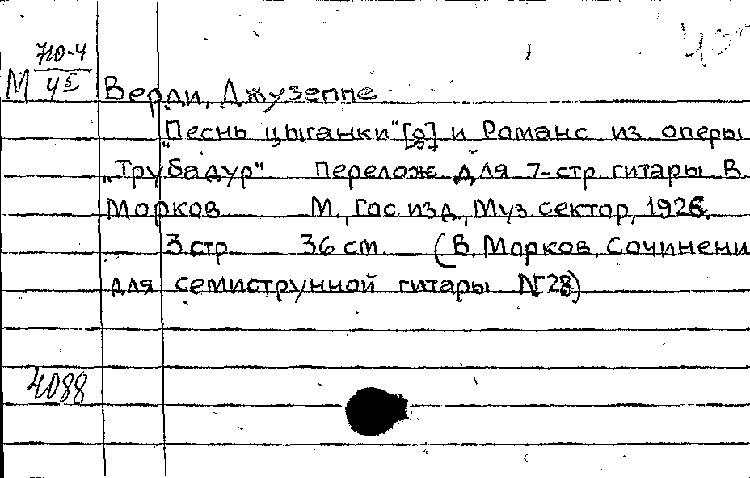 710-4
М 45
Верди, Джузеппе
"Песнь цыганки" [a] и Романс из оперы
"Трубадур" Перелож для 7-стр гитары В.
Морков М., Гос. изд, Муз. сектор, 1926.
3 стр 36 см (В. Морков, Сочинени
для семиструнной гитары N 28)
4088